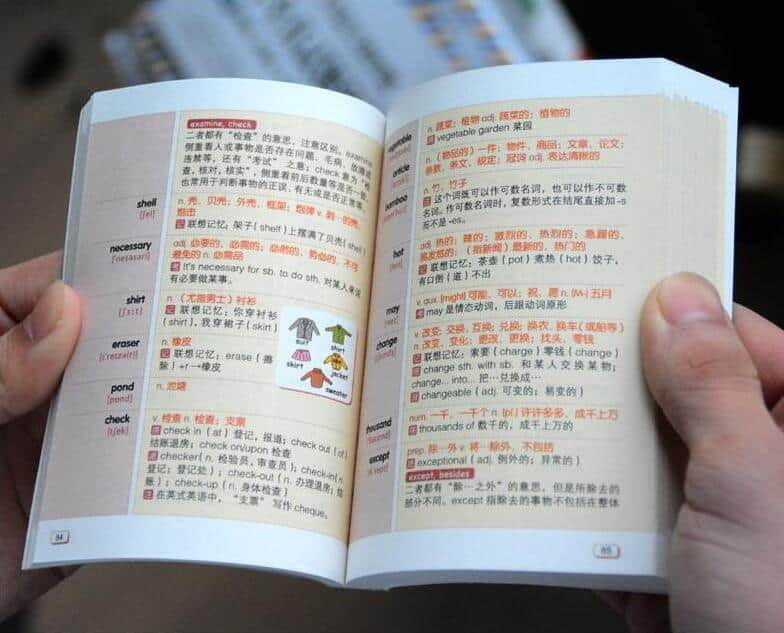 examine, check
二者都有“检查”的意思，注意区别。examine
侧重看人或事物是否存在问题、毛病、故障或
违禁等，还有“考试”之意；check 意为“检
查，核对，核实”，侧重看前后数量等是否一致，
也常用于判断事物的正误、有无或是否正常等。
shell
n. 壳、贝壳；外壳、框架；炮弹 v. 剥…的壳、
炮击
[ʃel]
记 联想记忆：架子（shelf）上摆满了贝壳(shell)
necessary
adj. 必要的、必需的；必然的、势必的、不可
避免的 n. 必需品
考 It's necessary for sb. to do sth. 对某人来说
有必要做某事。
shirt
n. （尤指男士）衬衫
[ʃɜːt]
记 联想记忆：你穿衬衫
（shirt），我穿裙子（skirt）
suit
shirt
skirt
jacket
sweater
eraser
n. 橡皮
记 联想记忆：erase（擦
除）+r→橡皮
pond
n. 池塘
[pɒnd]
check
v. 检查 n. 检查；支票
[tʃek]
check in（at）登记，报道；check out（of）
结账退房；check on/upon 检查
checker(n. 检验员，审查员)；check-in(n.
登记；登记处)；check-out（n. 办理退房；结
账）；check-up（n. 身体检查）
注 在英式英语中，“支票”写作 cheque。
84
vegetable
n. 蔬菜；植物 adj. 蔬菜的；植物的
vegetable garden 菜园
article
n. （物品的）一件；物件、商品；文章、论文；
条款、条文、规定；冠词 adj. 表达清晰的
bamboo
n. 竹，竹子
这个词既可以作可数名词，也可以作不可数
名词。作可数名词时，复数形式在结尾直接加 -s
而不是 -es。
hot
adj. 热的；辣的；激烈的、热烈的；急躁的、
易发怒的；（指新闻）最新的、热门的
[hɒt]
记 联想记忆：茶壶（pot）煮热（hot）饺子，
有口倒（道）不出
may
v. aux. [might] 可能，可以；祝，愿 n. (M-) 五月
[meɪ]
考 may 是情态动词，后跟动词原形
change
v. 改变；交换，互换；兑换；换衣、换车（或船等）
n. 改变、变化；更改、更换；找头、零钱
记 联想记忆：索要（charge）零钱（change）
change sth. with sb. 和某人交换某物；
change… into… 把…兑换成…
changeable（adj. 可变的；易变的）
thousand
num. 一千，一千个 n. [pl.] 许许多多、成千上万
thousands of 数千的，成千上万的
except
prep. 除…外 v. 将…除外、不包括
exceptional（adj. 例外的；异常的）
except, besides
二者都有“除…之外”的意思，但是所除去的
部分不同。except 指除去的事物不包括在整体
85